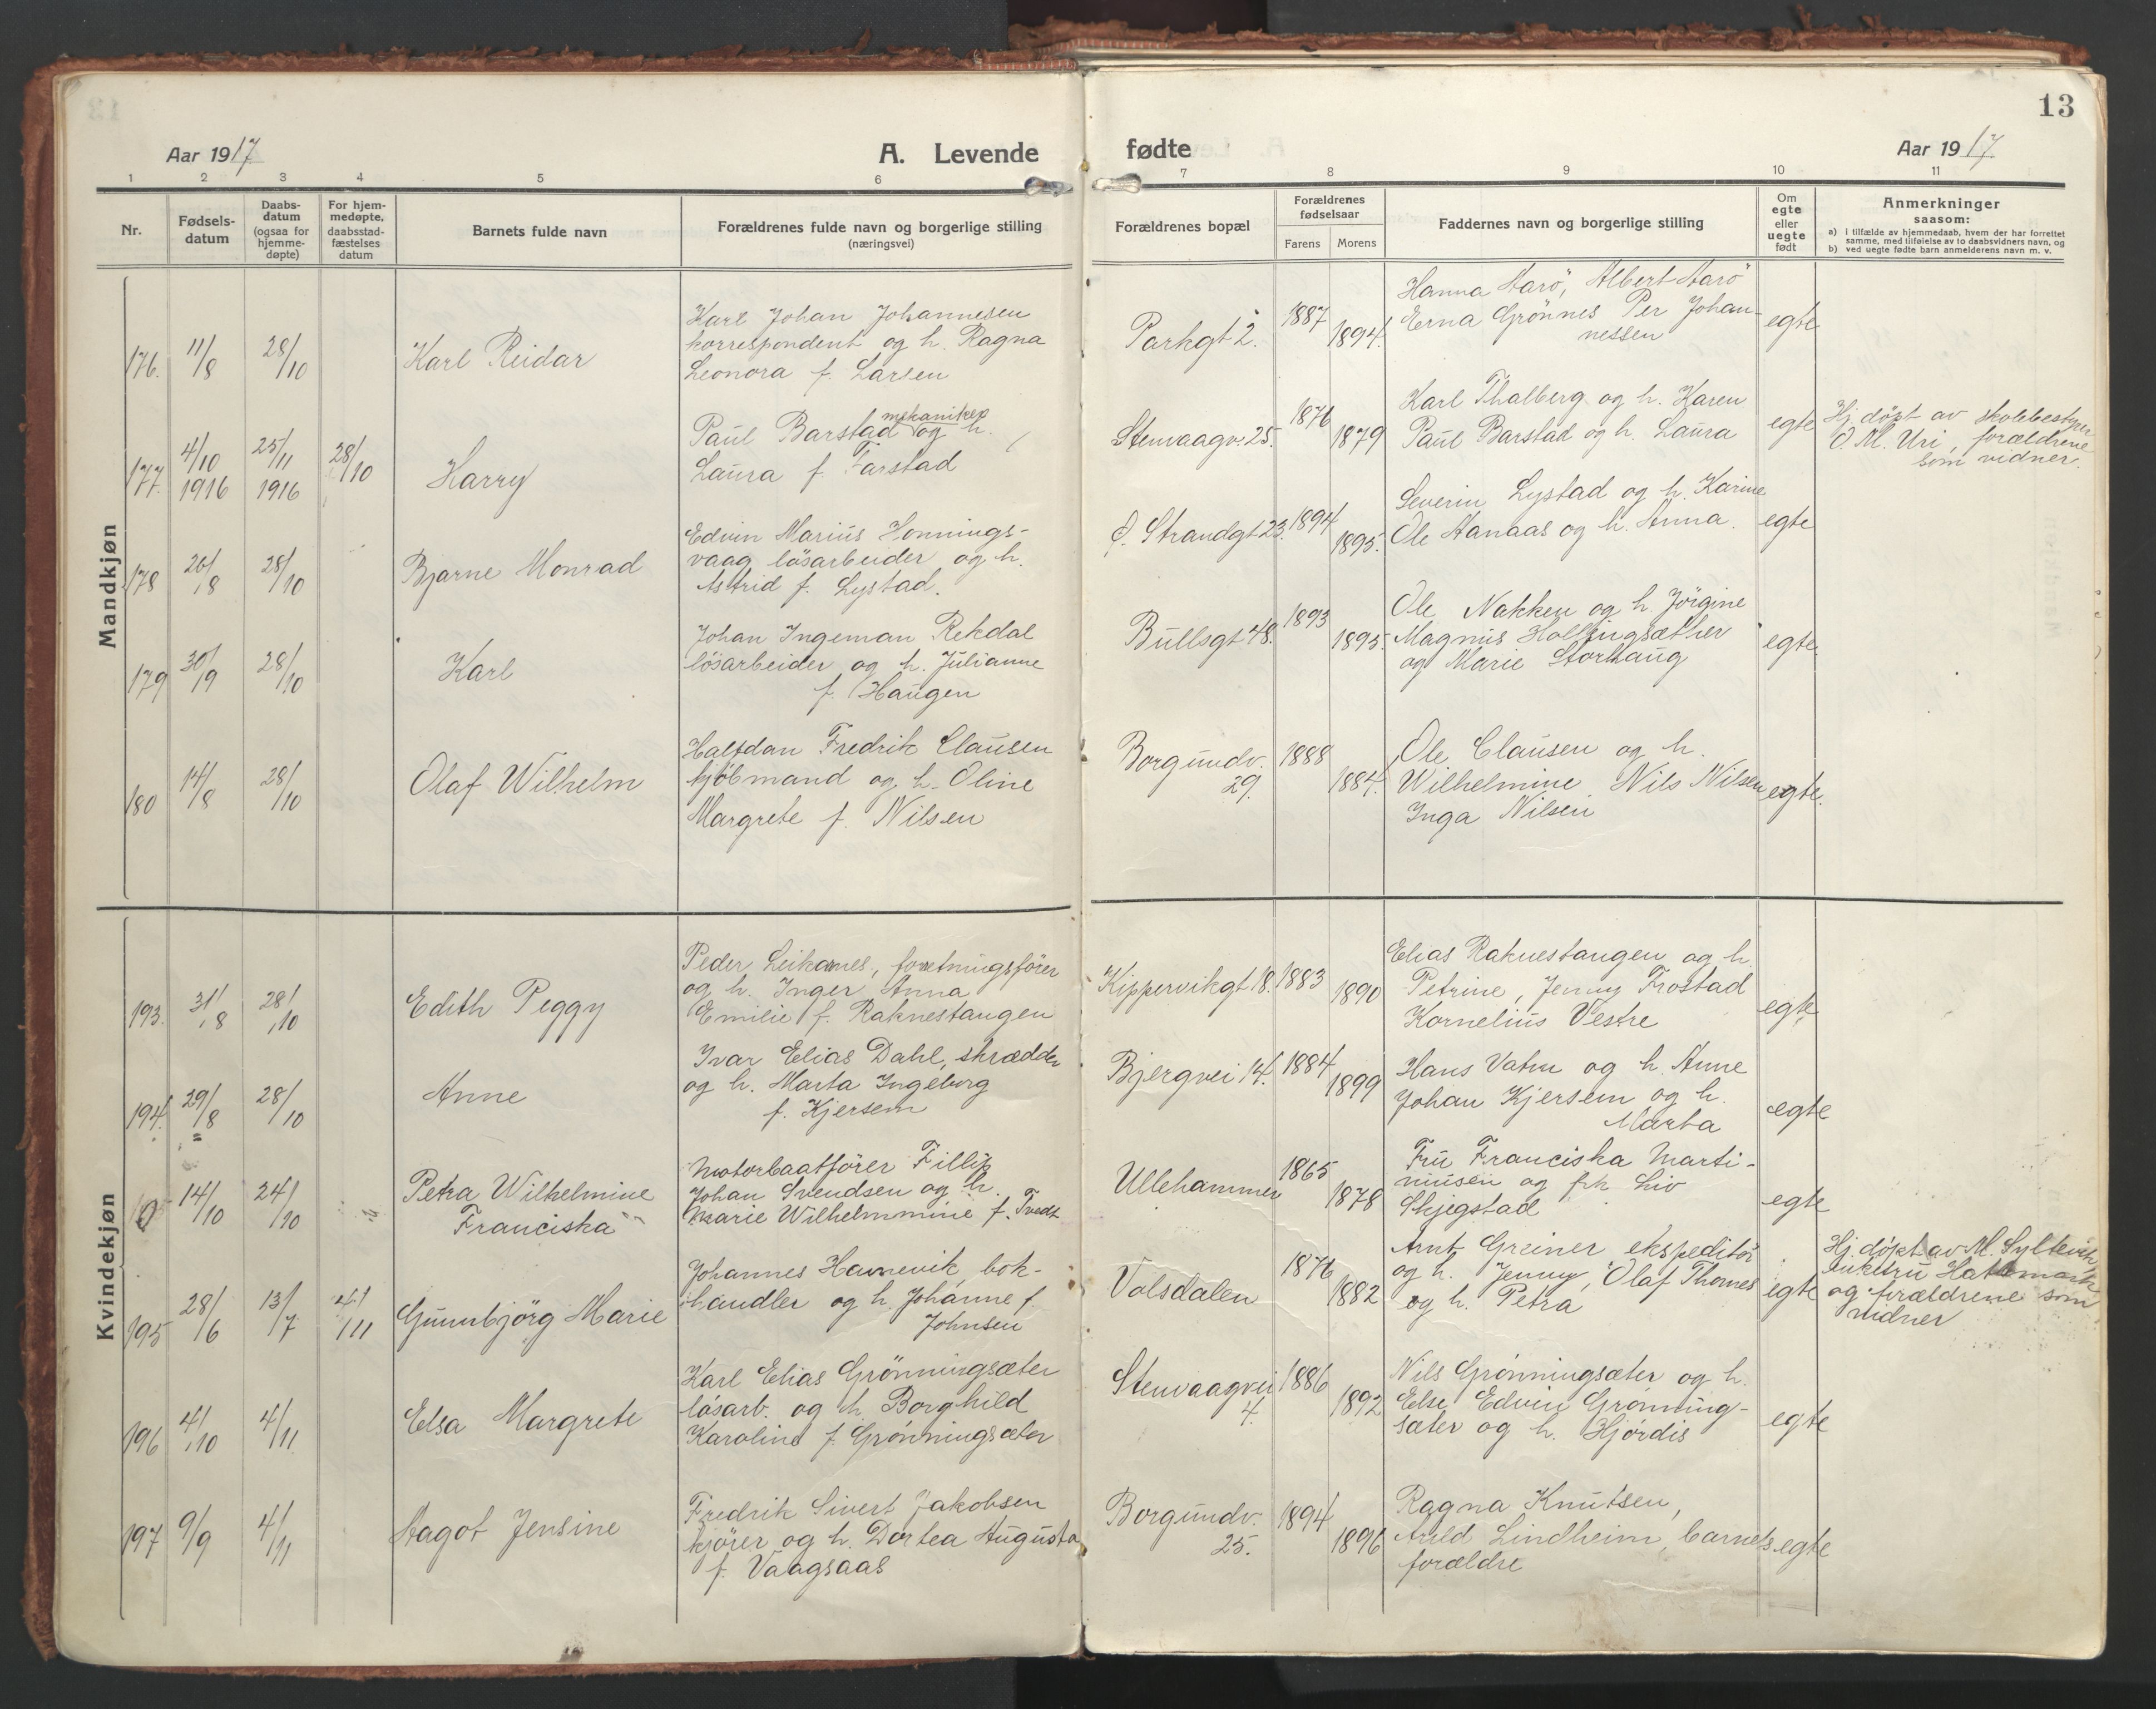 13
Aar 1917
A. Levende fødte
Aar 1917
1 2 3 4 5 6 7 8 9 10 11
Nr.
Fødsels-
datum
Daabs-
datum
(ogsaa for
hjemme-
døpte)
For hjem-
medøpte,
daabsstad-
fæstelses
datum
Barnets fulde navn
Forældrenes fulde navn og borgerlige stilling
(næringsvei)
Forældrenes bopæl
Forældrenes
fødselsaar
Farens Morens
Faddernes navn og borgerlige stilling
Om
egte
eller
uegte
født
Anmerkninger
saasom:
a) i tilfælde av hjemmedaab, hvem der har forrettet
samme, med tilføielse av to daabsvidners navn, og
b) ved uegte fødte barn anmelderens navn m. v.
Mandkjøn
176. 11/8 28/10
Karl Reidar
Karl Johan Johannesen
korrespondent og h. Ragna
Leonora f. Larsen
Parkgt 2.
1887
1894.
Hanna Aarö, Albert Aarö
Erna Grönnes Per Johan-
nessen
egte
177. 4/10 1916 25/11 1916 28/10
Harry
mekaniker
Paul Barstad og h.
Laura f. Farstad
Stenvaagv. 25.
1876
1879
Karl Thalberg og h. Karen
Paul Barstad og h. Laura
egte
Hj. døpt av skolebestyrer
O. M. Uri, forældrene
som vidner.
178 26/8 28/10
Bjarne Monrad
Edvin Marius Honnings-
vaag lösarbeider og h.
Astrid f. Lystad.
Ø. Strandgt 23.
1894
1895.
Severin Lystad og h. Karine
Ole Aanaas og h. Anna.
egte
179 30/9 28/10
Karl
Johan Ingeman Rekdal
lösarbeider og h. Julianne
f. Haugen
Bullsgt 48.
1893
1895.
Ole Nakken og h. Jörgine
Magnus Hollingsæther
og Marie Storhaug
egte.
180 14/8 28/10
Olaf Wilhelm
Halfdan Fredrik Clausen
kjöbmand og h. Oline
Margrete f. Nilsen
Borgundv.
29.
1888
1884.
Ole Clausen og h.
Wilhelmine Nils Nilsen
Inga Nilsen
egte.
Kvindekjøn
193. 31/8 28/10
Edith Peggy
Peder Leikanes, forretningsfører
og h. Inger Anna
Emilie f. Raknestangen
Kippervikgt 18.
1883
1890
Elias Raknestangen og h.
Petrine, Jenny Frostad
Kornelius Vestre
egte
194. 29/8 28/10
Anne
Ivar Elias Dahl, skrædder
og h. Marta Ingeborg
f. Kjersem
Bjergvei 14.
1884
1899
Hans Vatn og h. Anne
Johan Kjersem og h.
Marta
egte
0 14/10 24/10
Petra Wilhelmine
Franciska
Motorbaatfører Fillip
Johan Svendsen og h.
Marie Wilhelmmine f. Tvedt
Ullehammer
1865
1878
Fru Franciska Marti-
niusen og frk. Liv
Skjegstad
egte
195 28/6 13/7 4/11
Gunnbjörg Marie
Johannes Havnevik, bok-
handler og h. Johanne f.
Johnsen
Volsdalen
1876
1882
Arnt Greiner ekspeditör
og h. Jenny, Olaf Thomes
og h. Petra
egte
Hj. døpt av M. Syltevik
Hatlemark
og forældrene som
vidner
196 4/10 4/11.
Elsa Margrete
Karl Elias Grönningsæter
lösarb. og h. Borghild
Karoline f. Grönningsæter
Stenvaagvei
4.
1886
1892
Nils Grönningsæter og h.
Else Edvin Grönning-
sæter og h. Hjördis
egte
197 9/9 4/11
Aagot Jensine
Fredrik Sivert Jakobsen
kjörer og h. Dortea Augusta
f. Vaagsaas
Borgundv.
25.
1894
1896
Ragna Knutsen,
Lindheim, barnets
forældre
egte